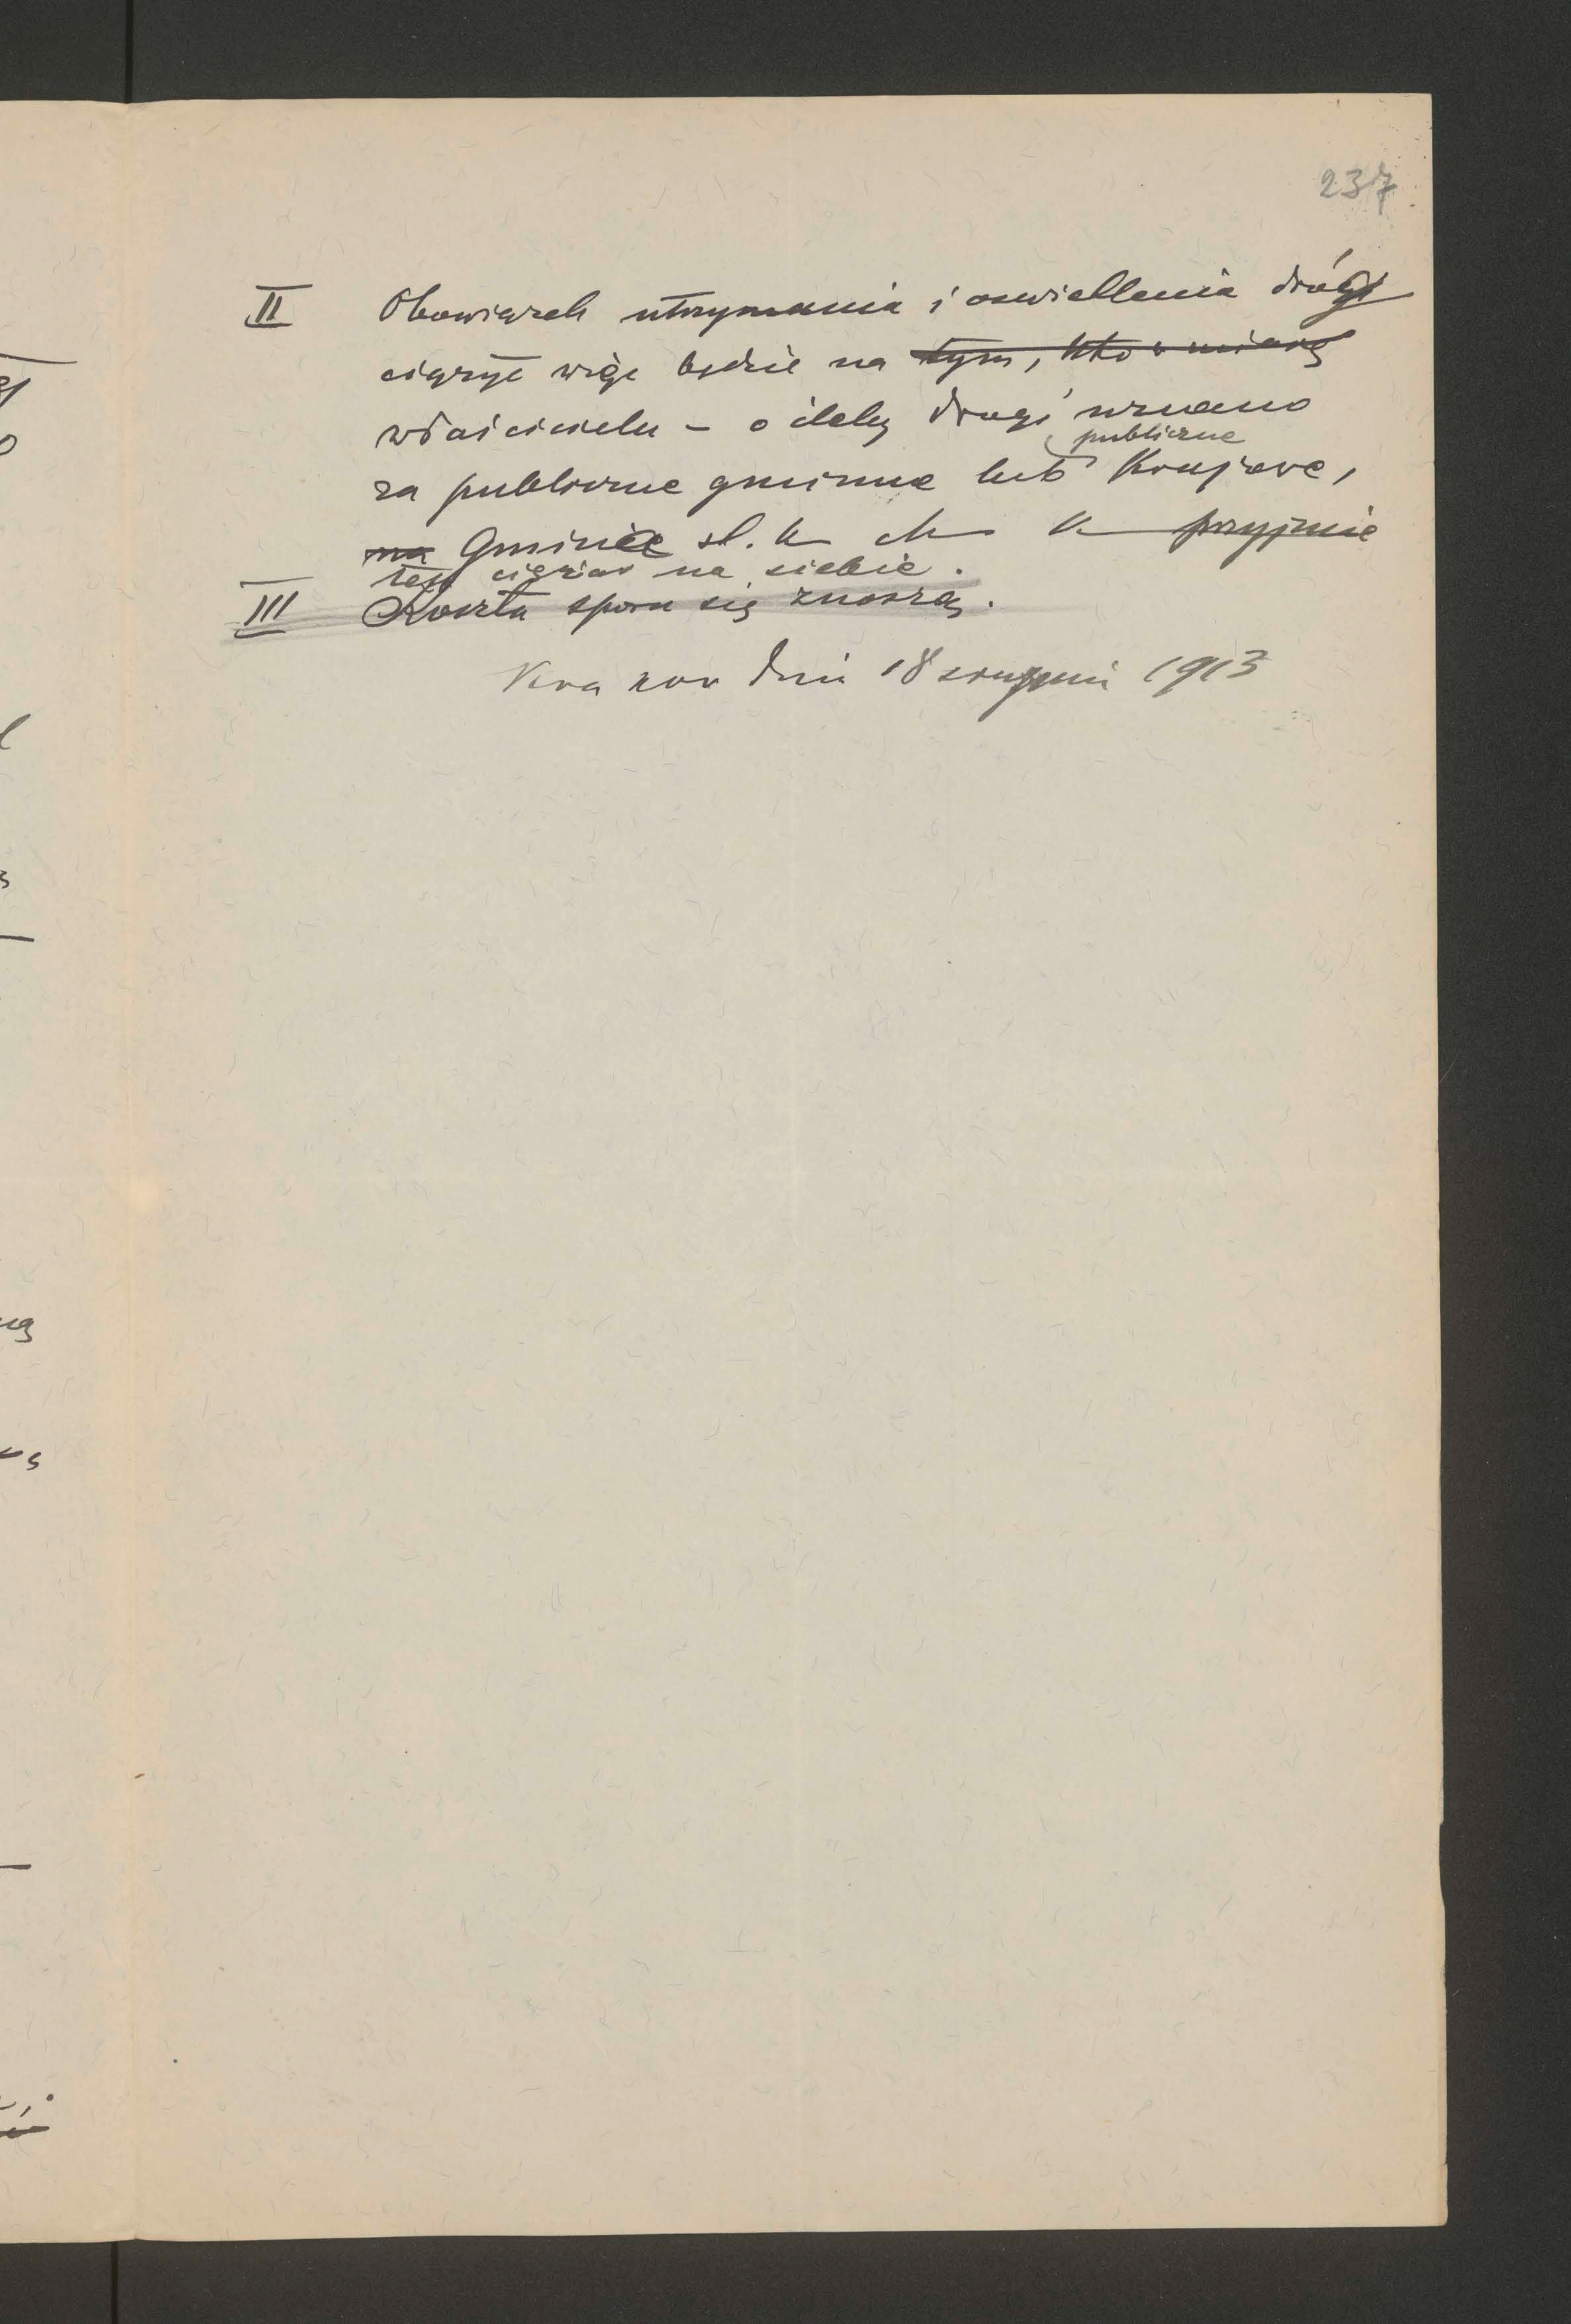 237
II Obowiązek utrzymania i oswietlenia drógi
ciężyć więc będzie na tym, kto w miarę
właścicielu – o ileby drogi uznano
publiczne
za publiczne gminne lub Krajowe,
na Gminie st. k m. K przyjmie
ten ciężar na siebie.
III Koszta sporu się znoszą.
Kraków dnia 18 sierpnia 1913